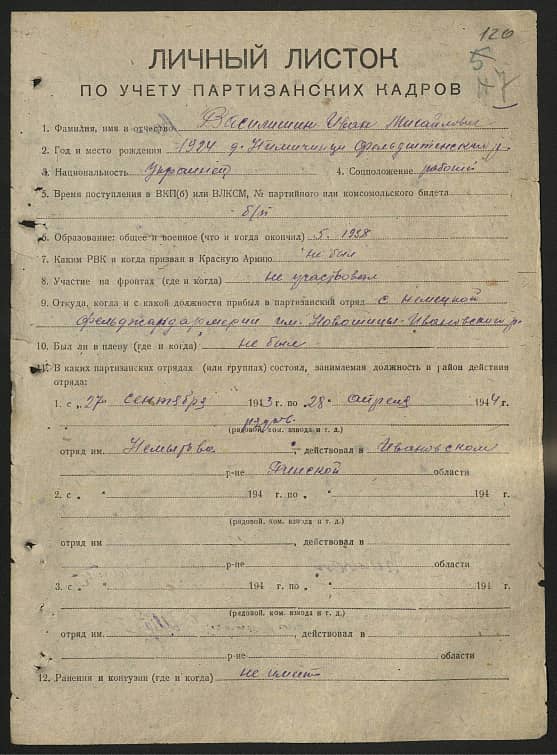 120
5
47
ЛИЧНЫЙ ЛИСТОК
ПО УЧЕТУ ПАРТИЗАНСКИХ КАДРОВ
1. Фамилия, имя и отчество Василишин Иван Михайлович
2. Год и место рождения 1924 д.
3. Национальность Украинец 4. Соцположение рабочий
5. Время поступления в ВКП(б) или ВЛКСМ, № партийного или комсомольского билета
б/п
6. Образование: общее и военное (что и когда окончил) 5. 1938
7. Каким РВК и когда призван в Красную Армию не был
8. Участие на фронтах (где и когда) не участвовал
9. Откуда, когда и с какой должности прибыл в партизанский отряд с немецкой
фельджандармерии им. Ивановский р.
10. Был ли в плену (где и когда) не был
11. В каких партизанских отрядах (или группах) состоял, занимаемая должность и район действия
отряда:
1. с „27 сентября 1943 г. по „28 апреля 1944 г.
рядов.
(рядовой, ком. взвода и т. д.)
отряд им Немытова, действовал в Ивановском
р-не Пинской области
2. с „ “ 194 г. по „ “ 194 г.
(рядовой, ком. взвода и т. д.)
отряд им , действовал в
р-не области
3. с „ “ 194 г. по „ “ 194 г.
(рядовой, ком. взвода и т. д.)
отряд им , действовал в
р-не области
12. Ранения и контузии (где и когда) не имеет